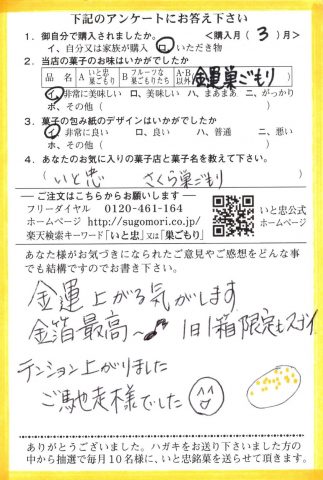 下記のアンケートにお答え下さい
1. 御自分で購入されましたか。 <購入月( 3 )月>
イ、自分又は家族が購入 ロ、いただき物
2. 当店の菓子のお味はいかがでしたか
品名 A いと忠巣ごもりたち B フルーツな巣ごもりたち A・B以外 金運巣ごもり
イ、非常に美味しい ロ、美味しい ハ、まあまあ ニ、がっかり
ホ、その他( )
3. 菓子の包み紙のデザインはいかがでしたか
イ、非常に良い ロ、良い ハ、普通 ニ、悪い
ホ、その他( )
4. あなたのお気に入りの菓子店と菓子名を教えて下さい。
( いと忠 さくら巣ごもり )
ご注文はこちらからお願いします
フリーダイヤル 0120-461-164
ホームページ http://sugomori.co.jp/
楽天検索キーワード「いと忠」又は「巣ごもり」
いと忠公式
ホームページ
あなた様がお気づきになられたご意見やご感想をどんな事
でも結構ですのでお書き下さい。
金運上がる気がします
金箔最高〜♪ 1日1箱限定もスゴイ
テンション上がりました
ご馳走様でした
ありがとうございました。ハガキをお送り下さいました方の
中から抽選で毎月10名様に、いと忠銘菓を送らせて頂きます。